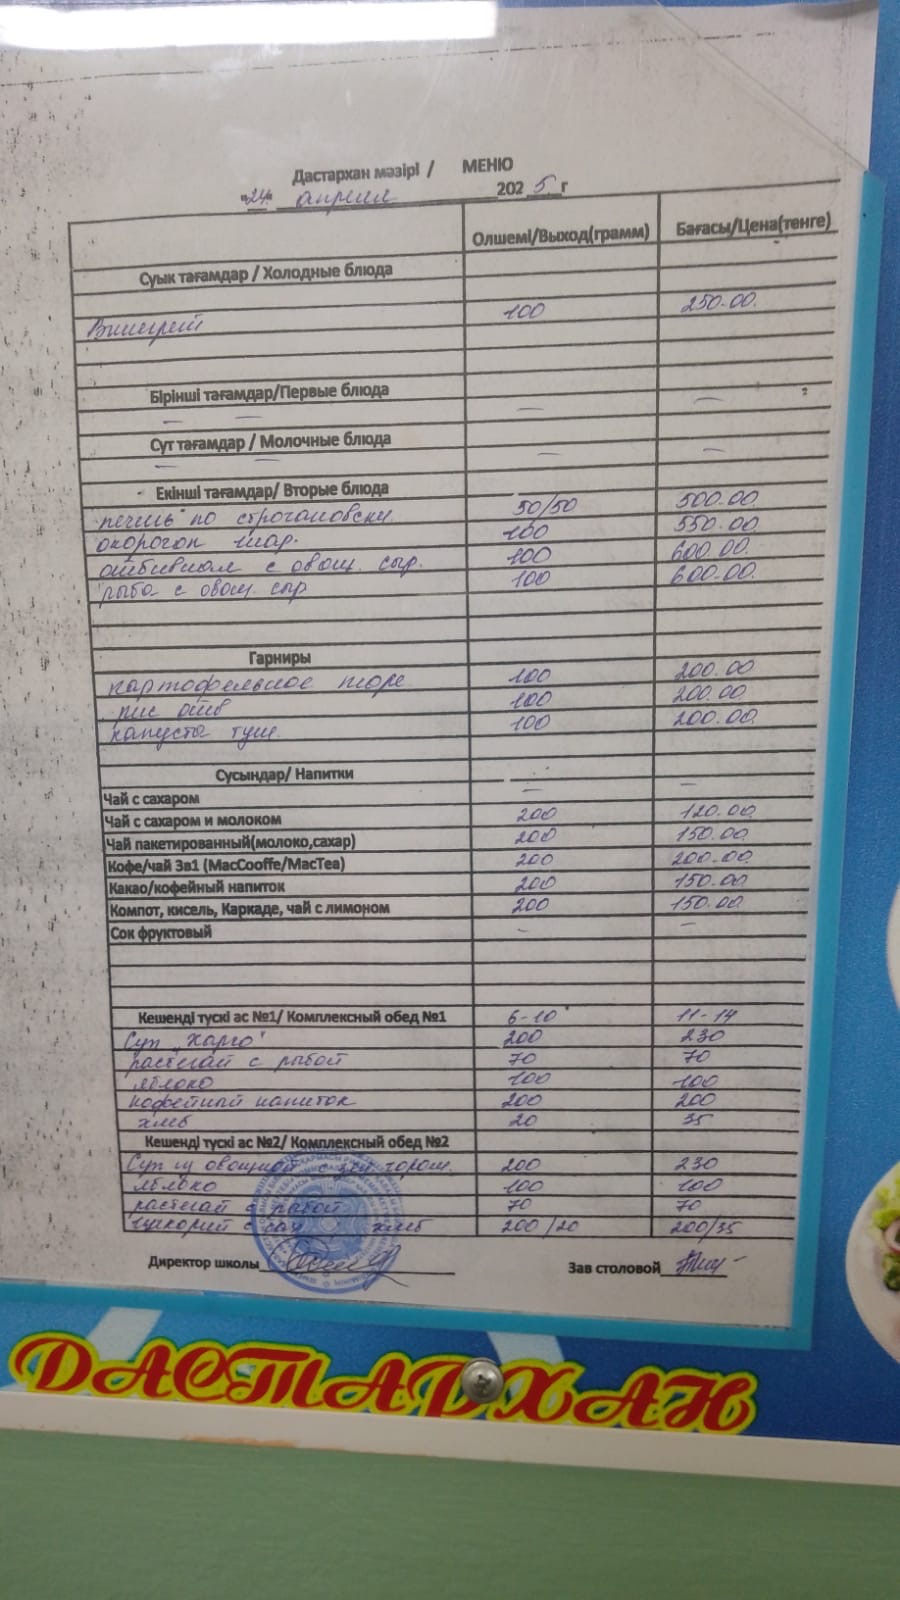 Дастархан мәзірі / МЕНЮ
"24" апреля 2025 г
Олшемі/Выход(грамм) Бағасы/Цена(тенге)
Суық тағамдар / Холодные блюда
Винегрет 100 250.00
Бірінші тағамдар/Первые блюда
— — — —
Сүт тағамдар / Молочные блюда
— — — —
Екінші тағамдар/ Вторые блюда
печень по строгановски 50/50 500.00
окорочок жар. 100 550.00
отбивная с овощ. сыр. 100 600.00
рыба с овощ. сыр 100 600.00
Гарниры
картофельное пюре 100 200.00
рис отв 100 200.00
капуста туш. 100 200.00
Сусындар/ Напитки
Чай с сахаром — —
Чай с сахаром и молоком 200 120.00
Чай пакетированный(молоко,сахар) 200 150.00
Кофе/чай 3в1 (MacCooffe/MacTea) 200 200.00
Какао/кофейный напиток 200 150.00
Компот, кисель, Каркаде, чай с лимоном 200 150.00
Сок фруктовый - —
Кешенді тускі ас №1/ Комплексный обед №1 6-10 11-14
Суп "Харчо" 200 230
растегай с рыбой 70 70
яблоко 100 100
кофейный напиток 200 200
хлеб 20 35
Кешенді тускі ас №2/ Комплексный обед №2
Суп из овощной с зел горош. 200 230
яблоко 100 100
растегай с рыбой 70 70
цикорий с сах хлеб 200/20 200/35
Директор школы Зав столовой
ДАСТАРХАН